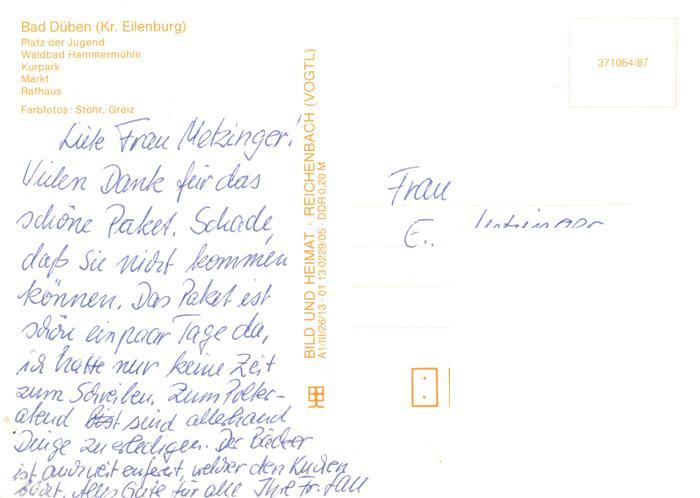 Bad Düben (Kr. Eilenburg)
Platz der Jugend
Waldbad Hammermühle
Kurpark
Markt
Rathaus
Farbfotos: Stöhr, Greiz
Liebe Frau Metzinger!
Vielen Dank für das
schöne Paket. Schade,
daß Sie nicht kommen
können. Das Paket ist
schon ein paar Tage da,
ich hatte nur keine Zeit
zum Schreiben. Zum Polter-
abend sind allerhand
Dinge zu erledigen. Der Bäcker
ist auch weit entfernt, welcher den Kuchen
bäckt. Alles Gute für alle Ihre Fr.
BILD UND HEIMAT · REICHENBACH (VOGTL)
A1/III/26/13 · 01 13 0229/05 DDR 0,20 M
371064/87
Frau
E..